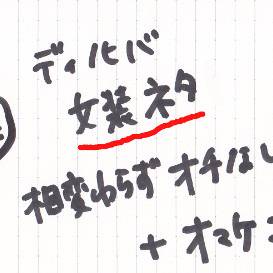 ディルヒバ
女装ネタ
相変わらずオチなし
+オマケ